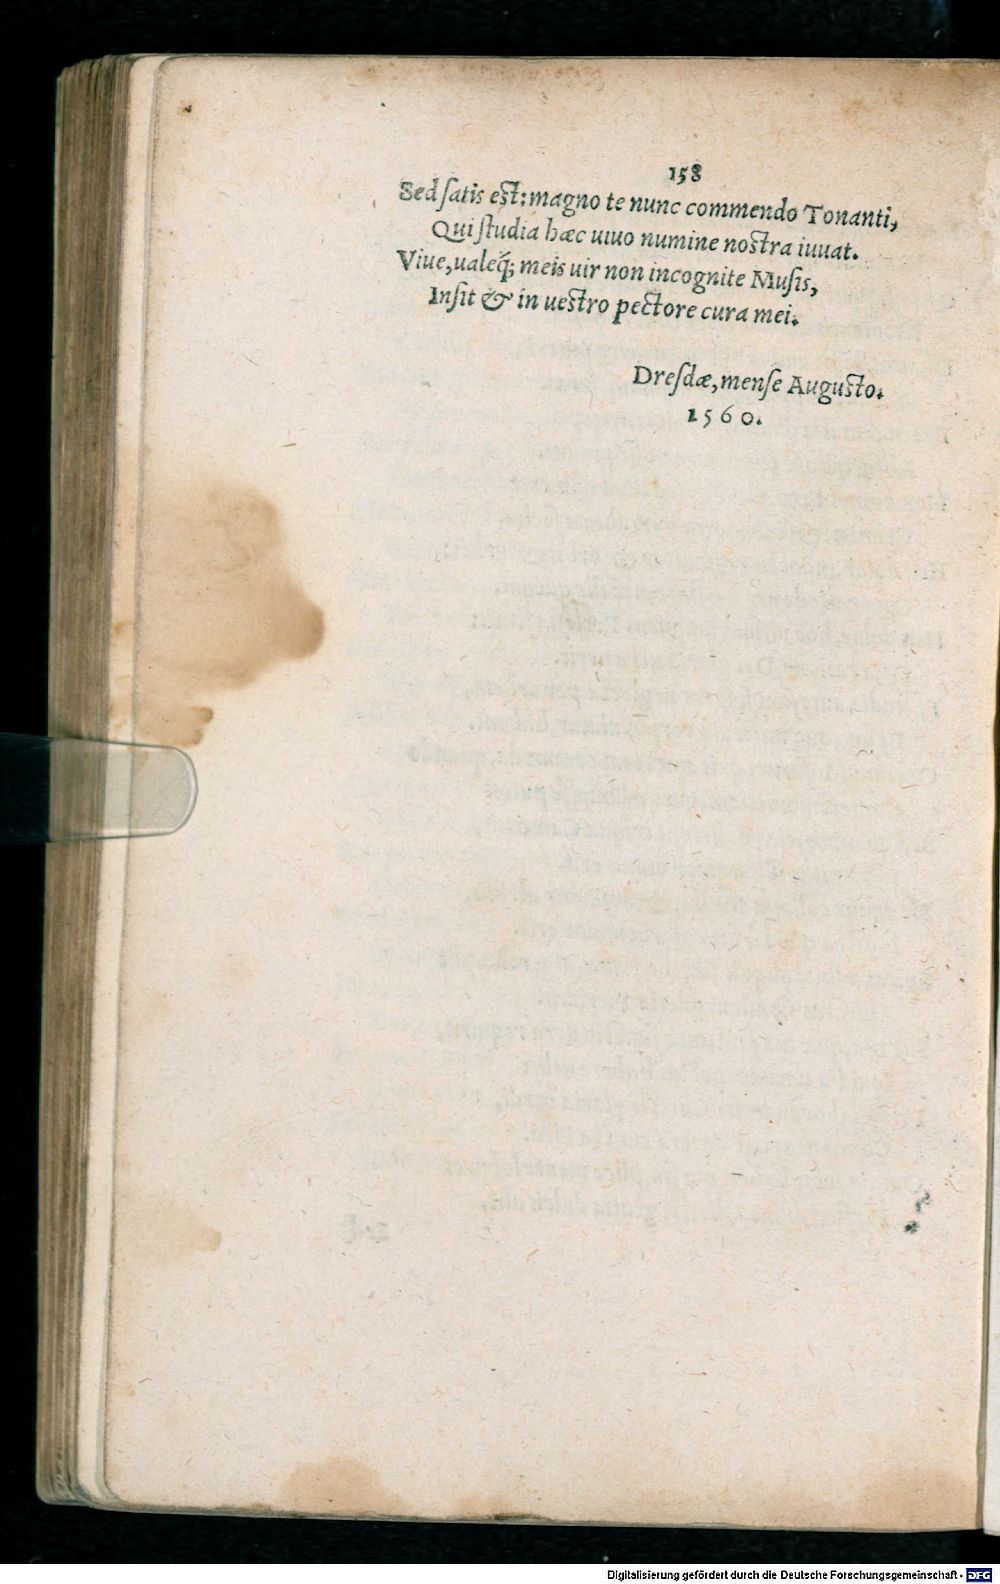 158
Sed ſatis eſt: magno te nunc commendo Tonanti,
Qui ſtudia hæc uiuo numine noſtra iuuat.
Viue, ualeq́; meis uir non incognite Muſis,
Inſit & in ueſtro pectore cura mei.
Dreſdæ, menſe Auguſto.
1560.
Digitalisierung gefördert durch die Deutsche Forschungsgemeinschaft - DFG